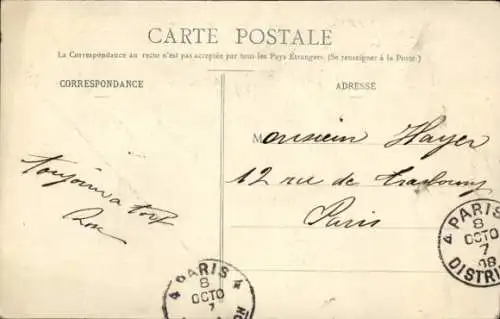 CARTE POSTALE
La Correspondance au recto n'est pas acceptée par tous les Pays Étrangers. (Se renseigner à la Poste.)
CORRESPONDANCE
ADRESSE
Monsieur Hayer
12 rue de Strasbourg
Paris
toujours a toi
PARIS 4
8
OCTO
7
08
DISTRI
4 PARIS 4
8
OCTO
7